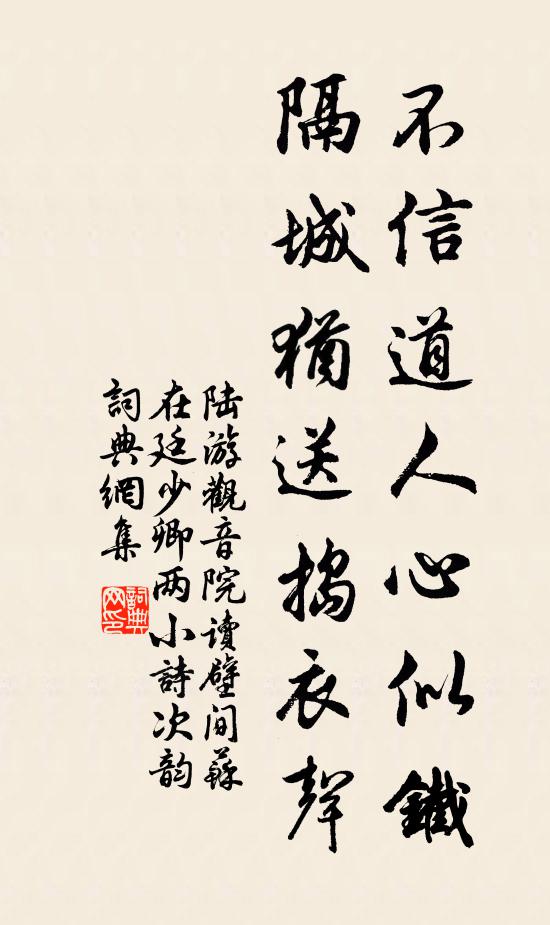 不信道人心似鐵
隔城猶送搗衣聲
陆游觀音院讀壁间蘇
在廷少卿两小詩次韵
詞典網集
詞典网印